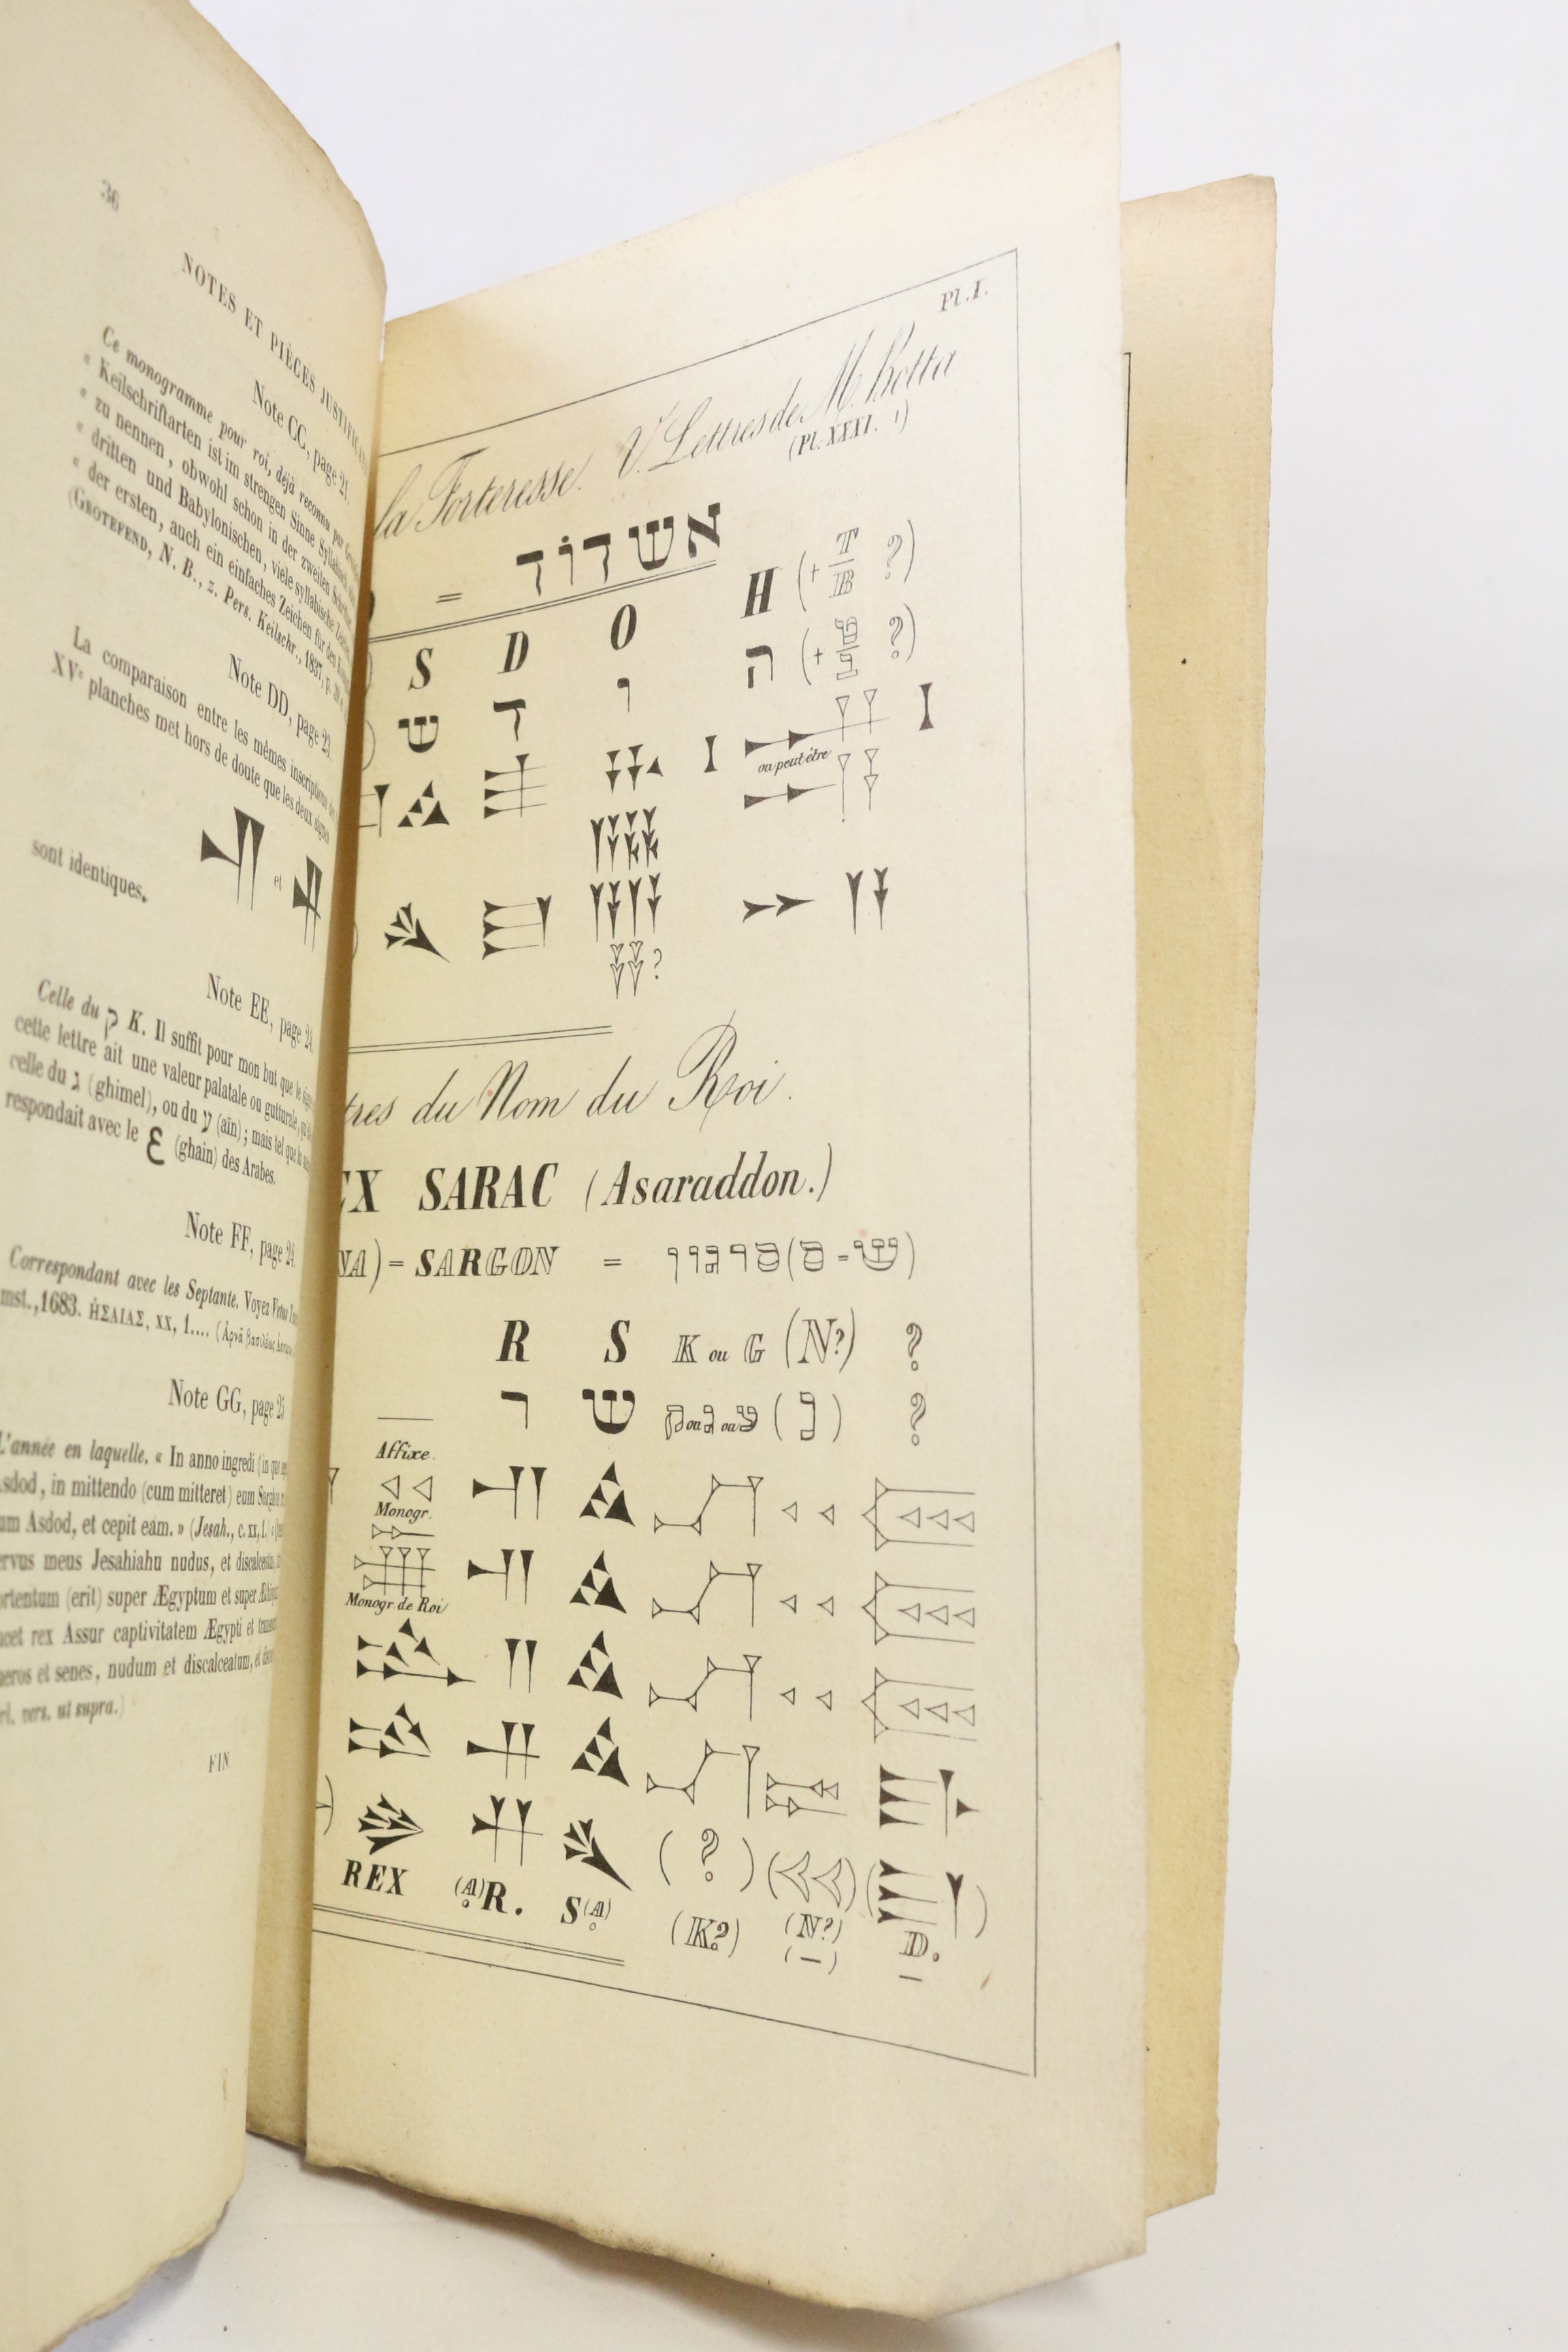 36
NOTES ET PIÈCES
Note CC, page 21.
Ce monogramme pour roi, déjà reconnu par
« Keilschriftarten ist im strengen Sinne
« zu nennen, obwohl schon in der zweiten
« dritten und Babylonischen, viele syllabische
« der ersten, auch ein einfaches Zeichen für den
(GROTEFEND, N. B., z. Pers. Keilschr., 1837, p.
Note DD, page 23.
La comparaison entre les mêmes inscriptions
XVe planches met hors de doute que les deux signes
et
sont identiques.
Note EE, page 24.
Celle du ק K. Il suffit pour mon but que le
cette lettre ait une valeur palatale ou gutturale,
celle du ג (ghimel), ou du ע (aïn); mais tel que
respondait avec le ع (ghain) des Arabes.
Note FF, page 24.
Correspondant avec les Septante. Voyez
mst., 1683. ἨΣΑΙΑΣ, XX, 1....
Note GG, page 25
L'année en laquelle. « In anno ingredi (in
Asdod, in mittendo (cum mitteret) eum
um Asdod, et cepit eam. » (Jesah., c. XX, 1.)
ervus meus Jesahiahu nudus, et
ortentum (erit) super Ægyptum et super
ucet rex Assur captivitatem Ægypti et
ueros et senes, nudum et discalceatum, et
ri. vers. ut supra.)
FIN
Pl. I.
la Forteresse. V. Lettres de M. Botta
(Pl. XXXI. 1)
= אשדוד
S D O H (+ T/B ?)
ש ד ו ה
ou peut être
?
tres du Nom du Roi.
EX SARAC (Asaraddon.)
NA) = SARGON =
R S K ou G (N?) ?
ר ש ou ou (נ) ?
Affixe.
Monogr.
Monogr. de Roi
(?)
REX (A)R. S(A) (K?) (N?) D.
(–) –